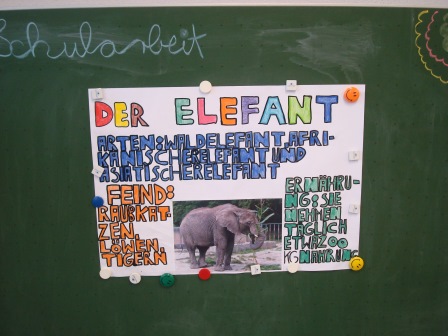 Schularbeit
DER ELEFANT
ARTEN: WALDELEFANT, AFRI-
KANISCHERELEFANT UND
ASIATISCHERELEFANT
FEIND:
RAUBKAT-
ZEN,
LÖWEN,
TIGERN
ERNÄHRU-
NG: SIE
NEHMEN
TÄGLICH
ETWA 200
KG NAHRUNG